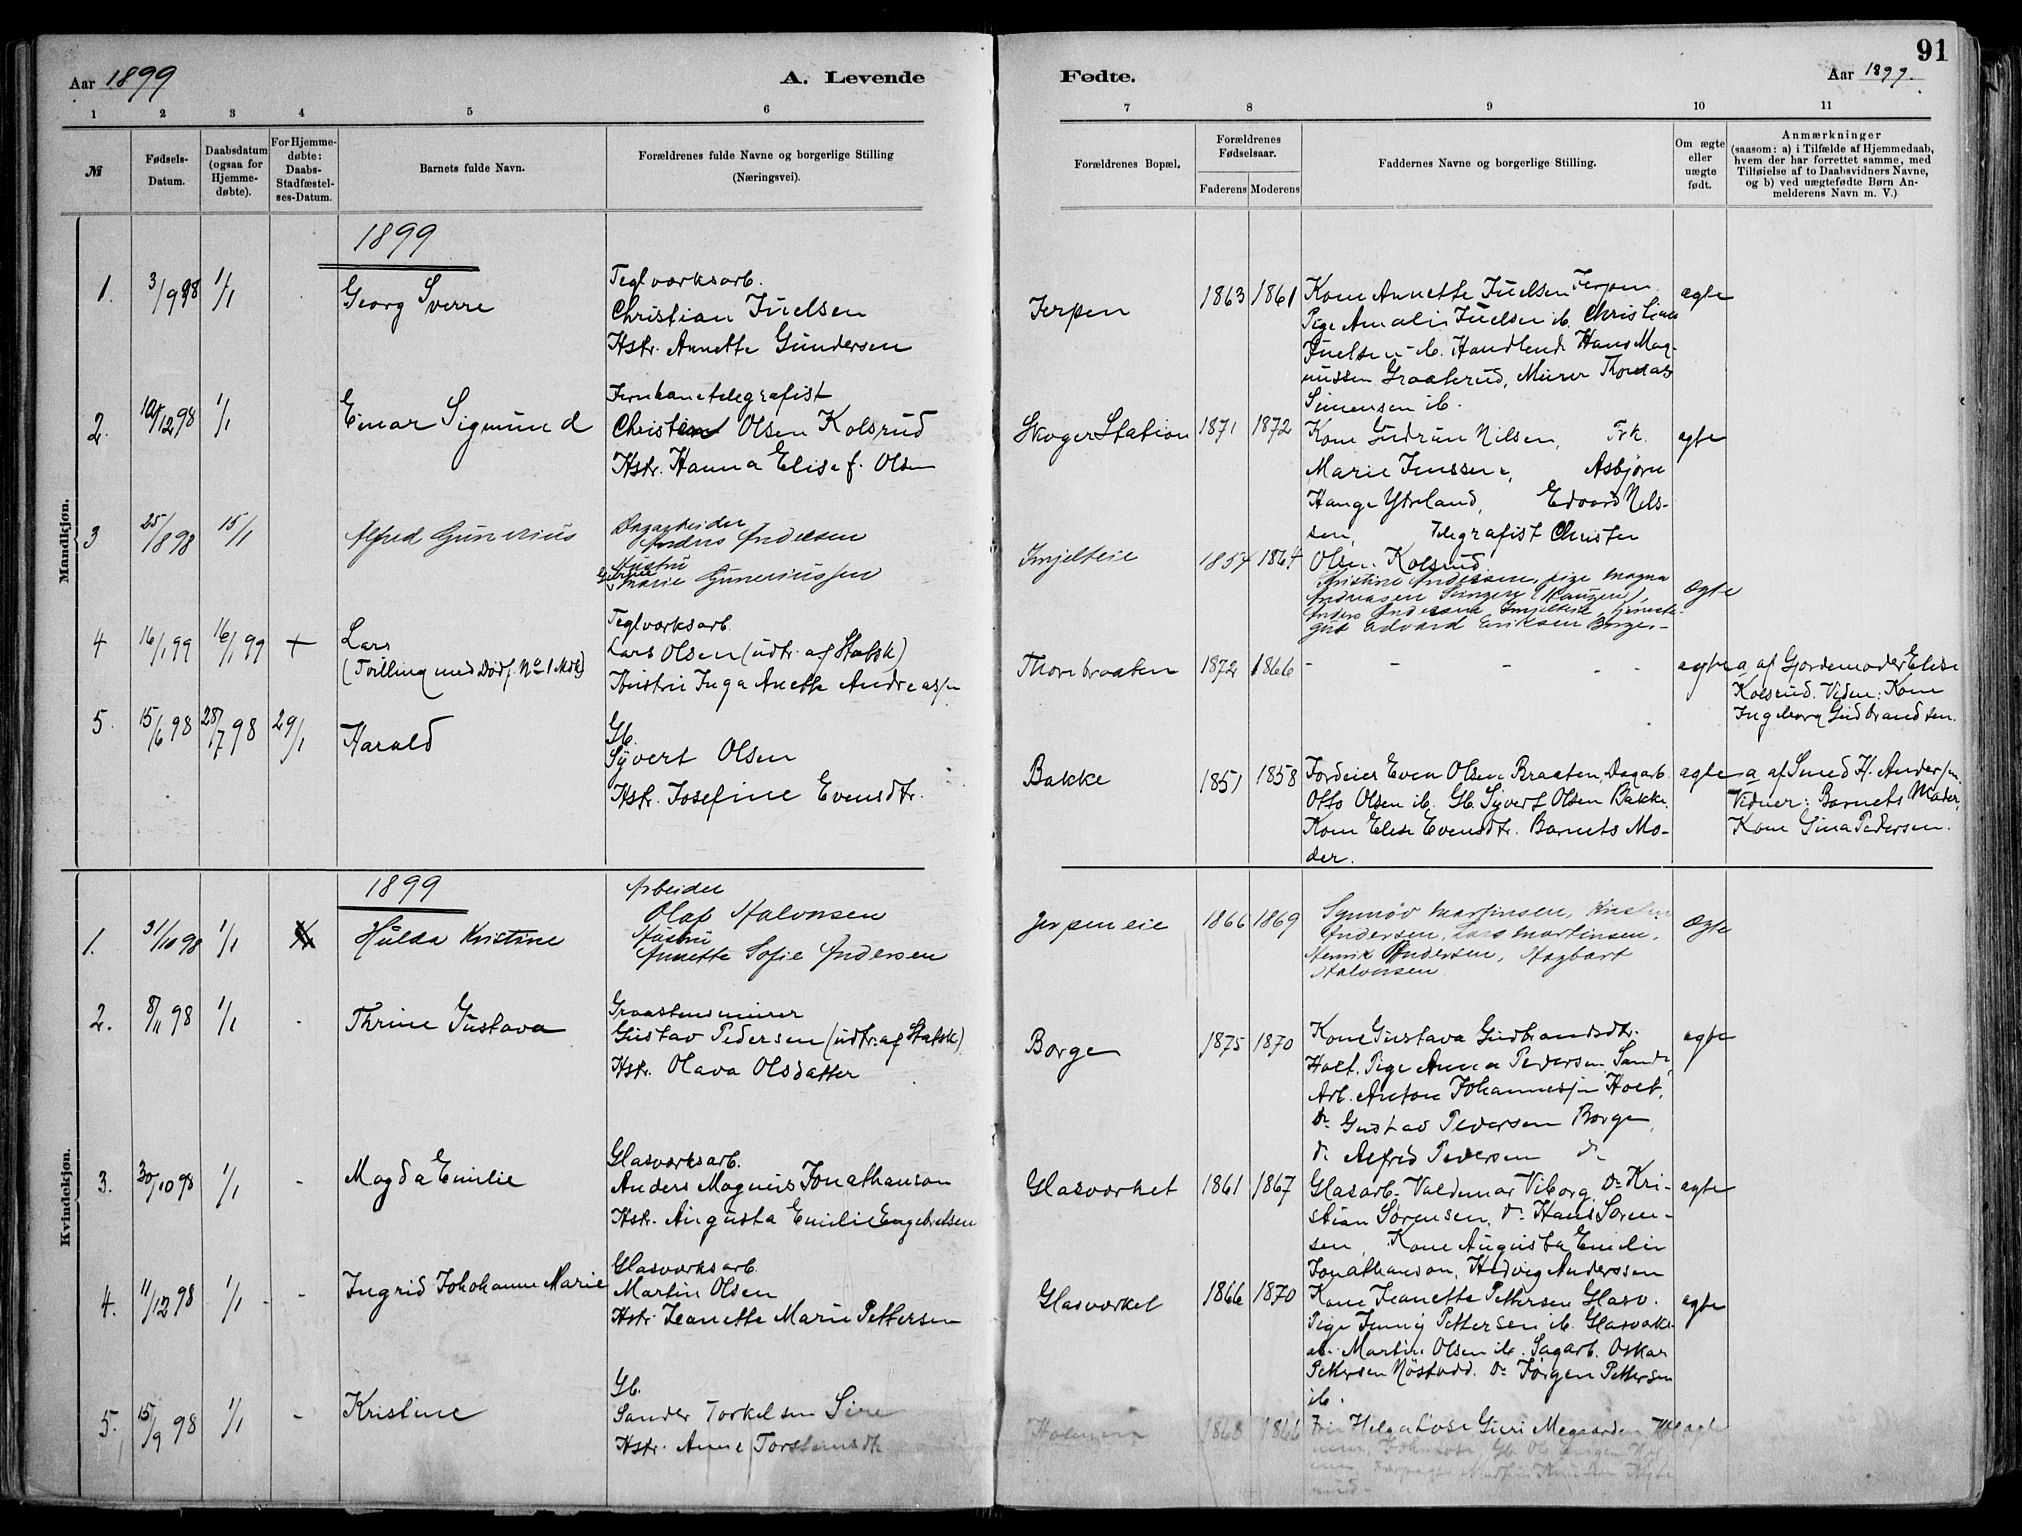 Aar 1899
A. Levende
Fødte.
Aar 1899.
91
1 2 3 4 5 6 7 8 9 10 11
№
Fødsels-
Datum.
Daabsdatum
(ogsaa for
Hjemme-
døbte).
For Hjemme-
døbte:
Daabs-
Stadfæstel-
ses-Datum.
Barnets fulde Navn.
Forældrenes fulde Navne og borgerlige Stilling
(Næringsvei).
Forældrenes Bopæl.
Forældrenes
Fødselsaar.
Faderens Moderens
Faddernes Navne og borgerlige Stilling.
Om ægte
eller
uægte
født.
Anmærkninger
(saasom: a) i Tilfælde af Hjemmedaab,
hvem der har forrettet samme, med
Tilføielse af to Daabsvidners Navne,
og b) ved uægtefødte Børn An-
melderens Navn m. V.)
Mandkjøn.
1899
1. 3/9 98 1/1
Georg Sverre
Teglværksarb.
Christian Juelsen
Hstr. Annette Gundersen
Jerpen
1863 1861
Kone Annette Juelsen Jerpen.
Pige Amalie Juelsen ib. Christian
Juelsen ib. Handlende Hans Mag-
nussen Graaterud, Murer Thomas
Simensen ib.
ægte
2. 10/12 98 1/1
Einar Sigmund
Jernbanetelegrafist
Christen Olsen Kolsrud
Hstr. Hanna Elise f. Olsen
Skoger Station
1871 1872
Kone Gudrun Nilsen, Frk.
Marie Jenssen, Asbjørn
Hange Ytreland, Edvard Nils-
sen, Telegrafist Christen
Olsen Kolsrud.
ægte
3 25/8 98 15/1
Alfred Gunerius
Dagarbeider
Anders Andersen
Hustru
Marie Guneriussen
Smjelteie
1857 1864
Kristine Andersen, pige Magna
Andreasen
Anders Andersen Smjelteie, tjeneste-
gut Edvard Eriksen Borger-
ægte
4 16/1 99 16/1 99 +
Lars
(Tvilling med Dødf. No 1 Mdk)
Teglværksarb.
Lars Olsen (udtr. af Statsk)
Hustru Inga Anette Andreassen
Thorebraaten
1872 1866
- - - - -
ægte
a af Gjordemoder Elise
Kolsrud. Vidne: Kone
Ingeborg Gudbrandsen.
5. 15/6 98 28/7 98 29/1
Harald
Gb.
Syvert Olsen
Hstr. Josefine Evensdtr.
Bakke
1851 1858
Jordeier Even Olsen Braaten, Dagarb.
Otto Olsen ib. Gb. Syvert Olsen Bakke.
Kone Elise Evensdtr. Barnets Mo-
der.
ægte
a af Smed H. Andersen.
Vidner: Barnets Moder,
Kone Gina Pedersen.
Kvindekjøn.
1899
1. 31/10 98 1/1
Hulda Kristine
Arbeider
Olaf Halvorsen
Hustru
Annette Sofie Andersen
Jerpen eie
1866 1869
Synnøv Martinsen, Kristen
Andersen, Lars Martinsen,
Henrik Andersen, Hagbart
Halvorsen.
ægte
2. 8/11 98 1/1 -
Thrine Gustava
Graastensmurer
Gustav Pedersen (udtr. af Statsk)
Hstr. Olava Olsdatter
Borge
1875 1870
Kone Gustava Gudbrandsdtr.
Holt. Pige Anna Pedersen Sande,
Arb. Anton Johannessen Holt,
Do Gustav Pedersen Borge,
do Alfred Pedersen do
ægte
3. 30/10 98 1/1 -
Magda Emilie
Glasværksarb.
Anders Magnus Jonathanson
Hstr. Augusta Emilie Engebretsen
Glasværket
1861 1867
Glasarb. Valdemar Viborg, Do Kri-
stian Sørensen, do Hans Søren-
sen, Kone Augusta Emilie
Jonathanson, Hedvig Anderssen
ægte
4. 11/12 98 1/1 -
Ingrid Johohanne Marie
Glasværksarb.
Martin Olsen
Hstr. Jeanette Marie Pettersen
Glasværket
1866 1870
Kone Jeanette Pettersen Glasv.
Pige Jenny Pettersen ib. Glasværks-
arb. Martin Olsen ib. Sagarb. Oskar
Pettersen Nøstodd. Do Jørgen Pettersen
ib.
ægte
5. 15/9 98 1/1 -
Kristine
Gb.
Sander Torkelsen Sire
Hstr. Anne Torstensdtr
1868 1866
Fru Helga Lose Guri Megaarden
ægte